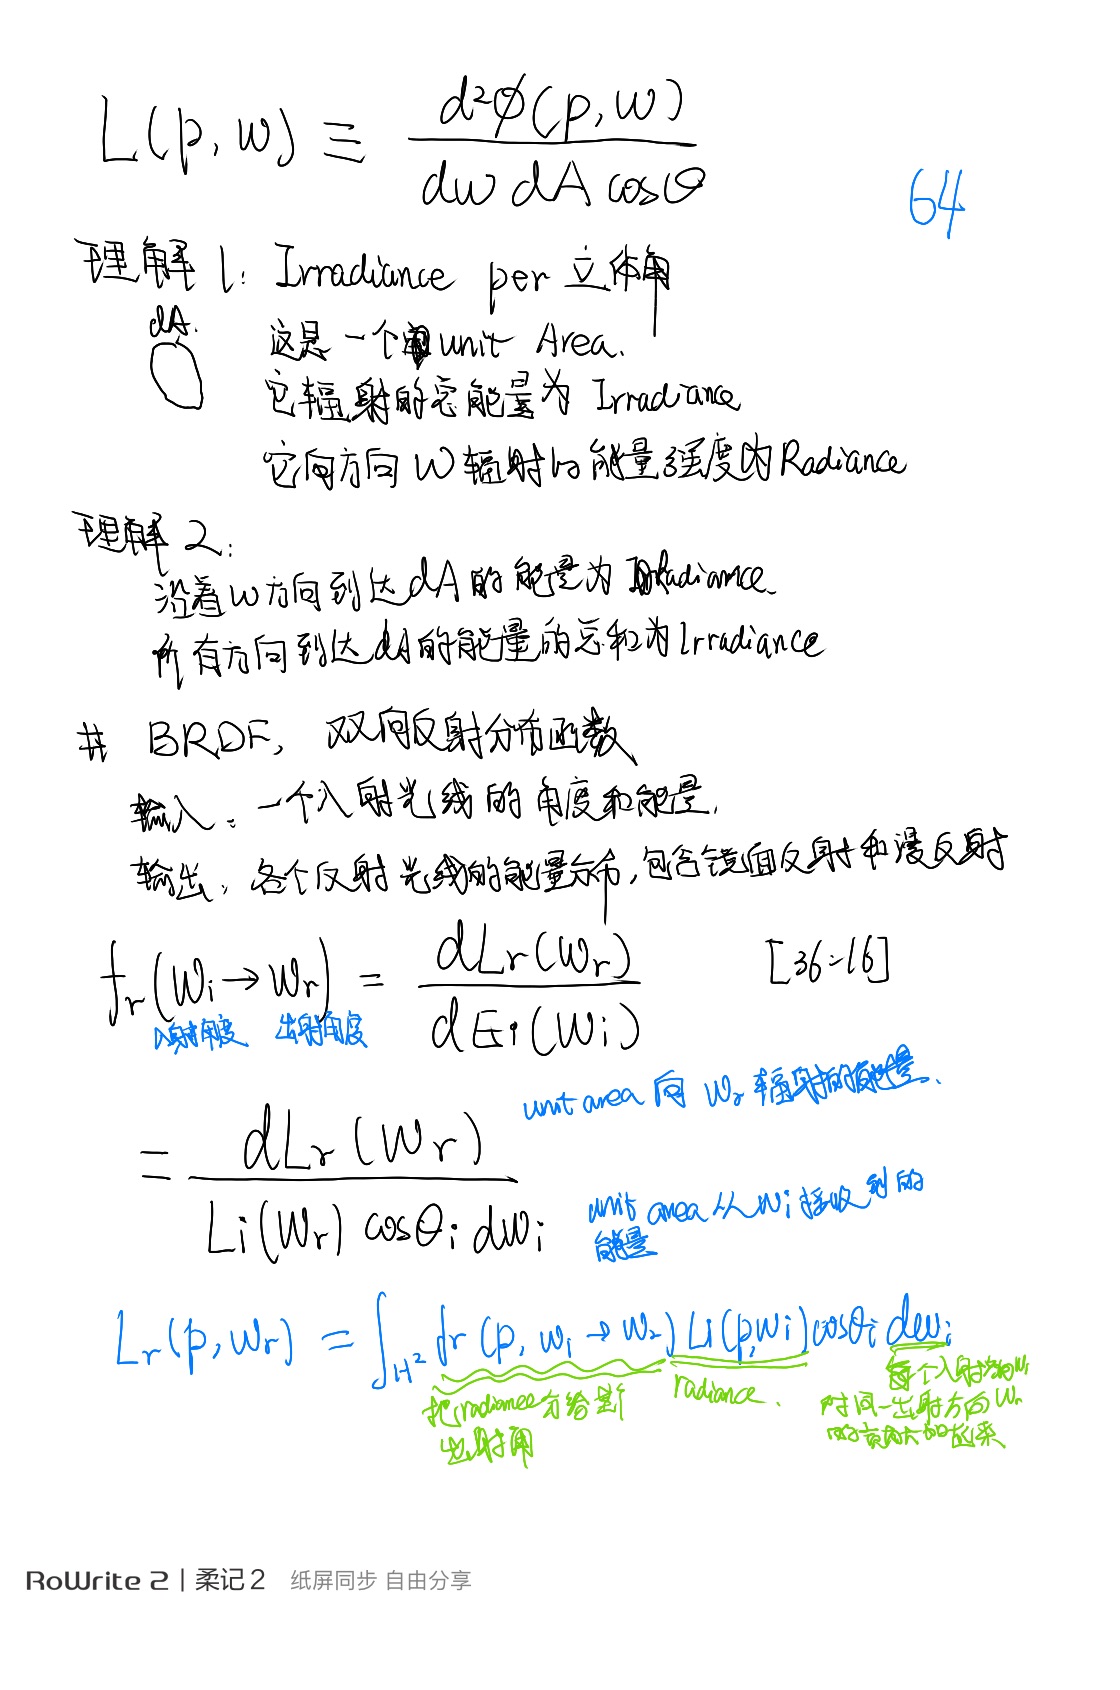 L(p,w) ≡ d²ϕ(p,w) / dw dA cosθ
64
理解1: Irradiance per 立体角
dA.
这是一个 unit Area.
它辐射的总能量为 Irradiance
它向方向 w 辐射的能量强度为 Radiance
理解2:
沿着w方向到达dA的能量为 Radiance.
所有方向到达dA的能量的总和为Irradiance
# BRDF, 双向反射分布函数
输入: 一个入射光线的角度和能量.
输出: 各个反射光线的能量分布,包含镜面反射和漫反射
fr(wi→wr) = dLr(wr) / dEi(wi) [36:16]
入射角度 出射角度
unit area 向 wr 辐射的能量.
= dLr(wr) / Li(wr) cosθi dwi
unit area 从wi接收到的
能量
Lr(p,wr) = ∫H² fr(p,wi→wr) Li(p,wi) cosθi dwi
把radiance分给新
出射角
radiance.
每个入射方向wi
对同一出射方向wr
的贡献加起来
RoWrite 2 | 柔记2 纸屏同步 自由分享